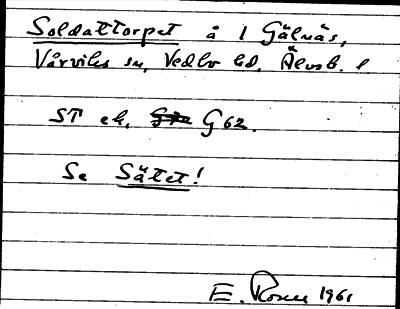 Soldattorpet å 1 Gälnäs,
Vårviks sn, Vedbo hd, Älvsb. l
ST ek. G 62.
Se Sätet!
E. Rosen 1961